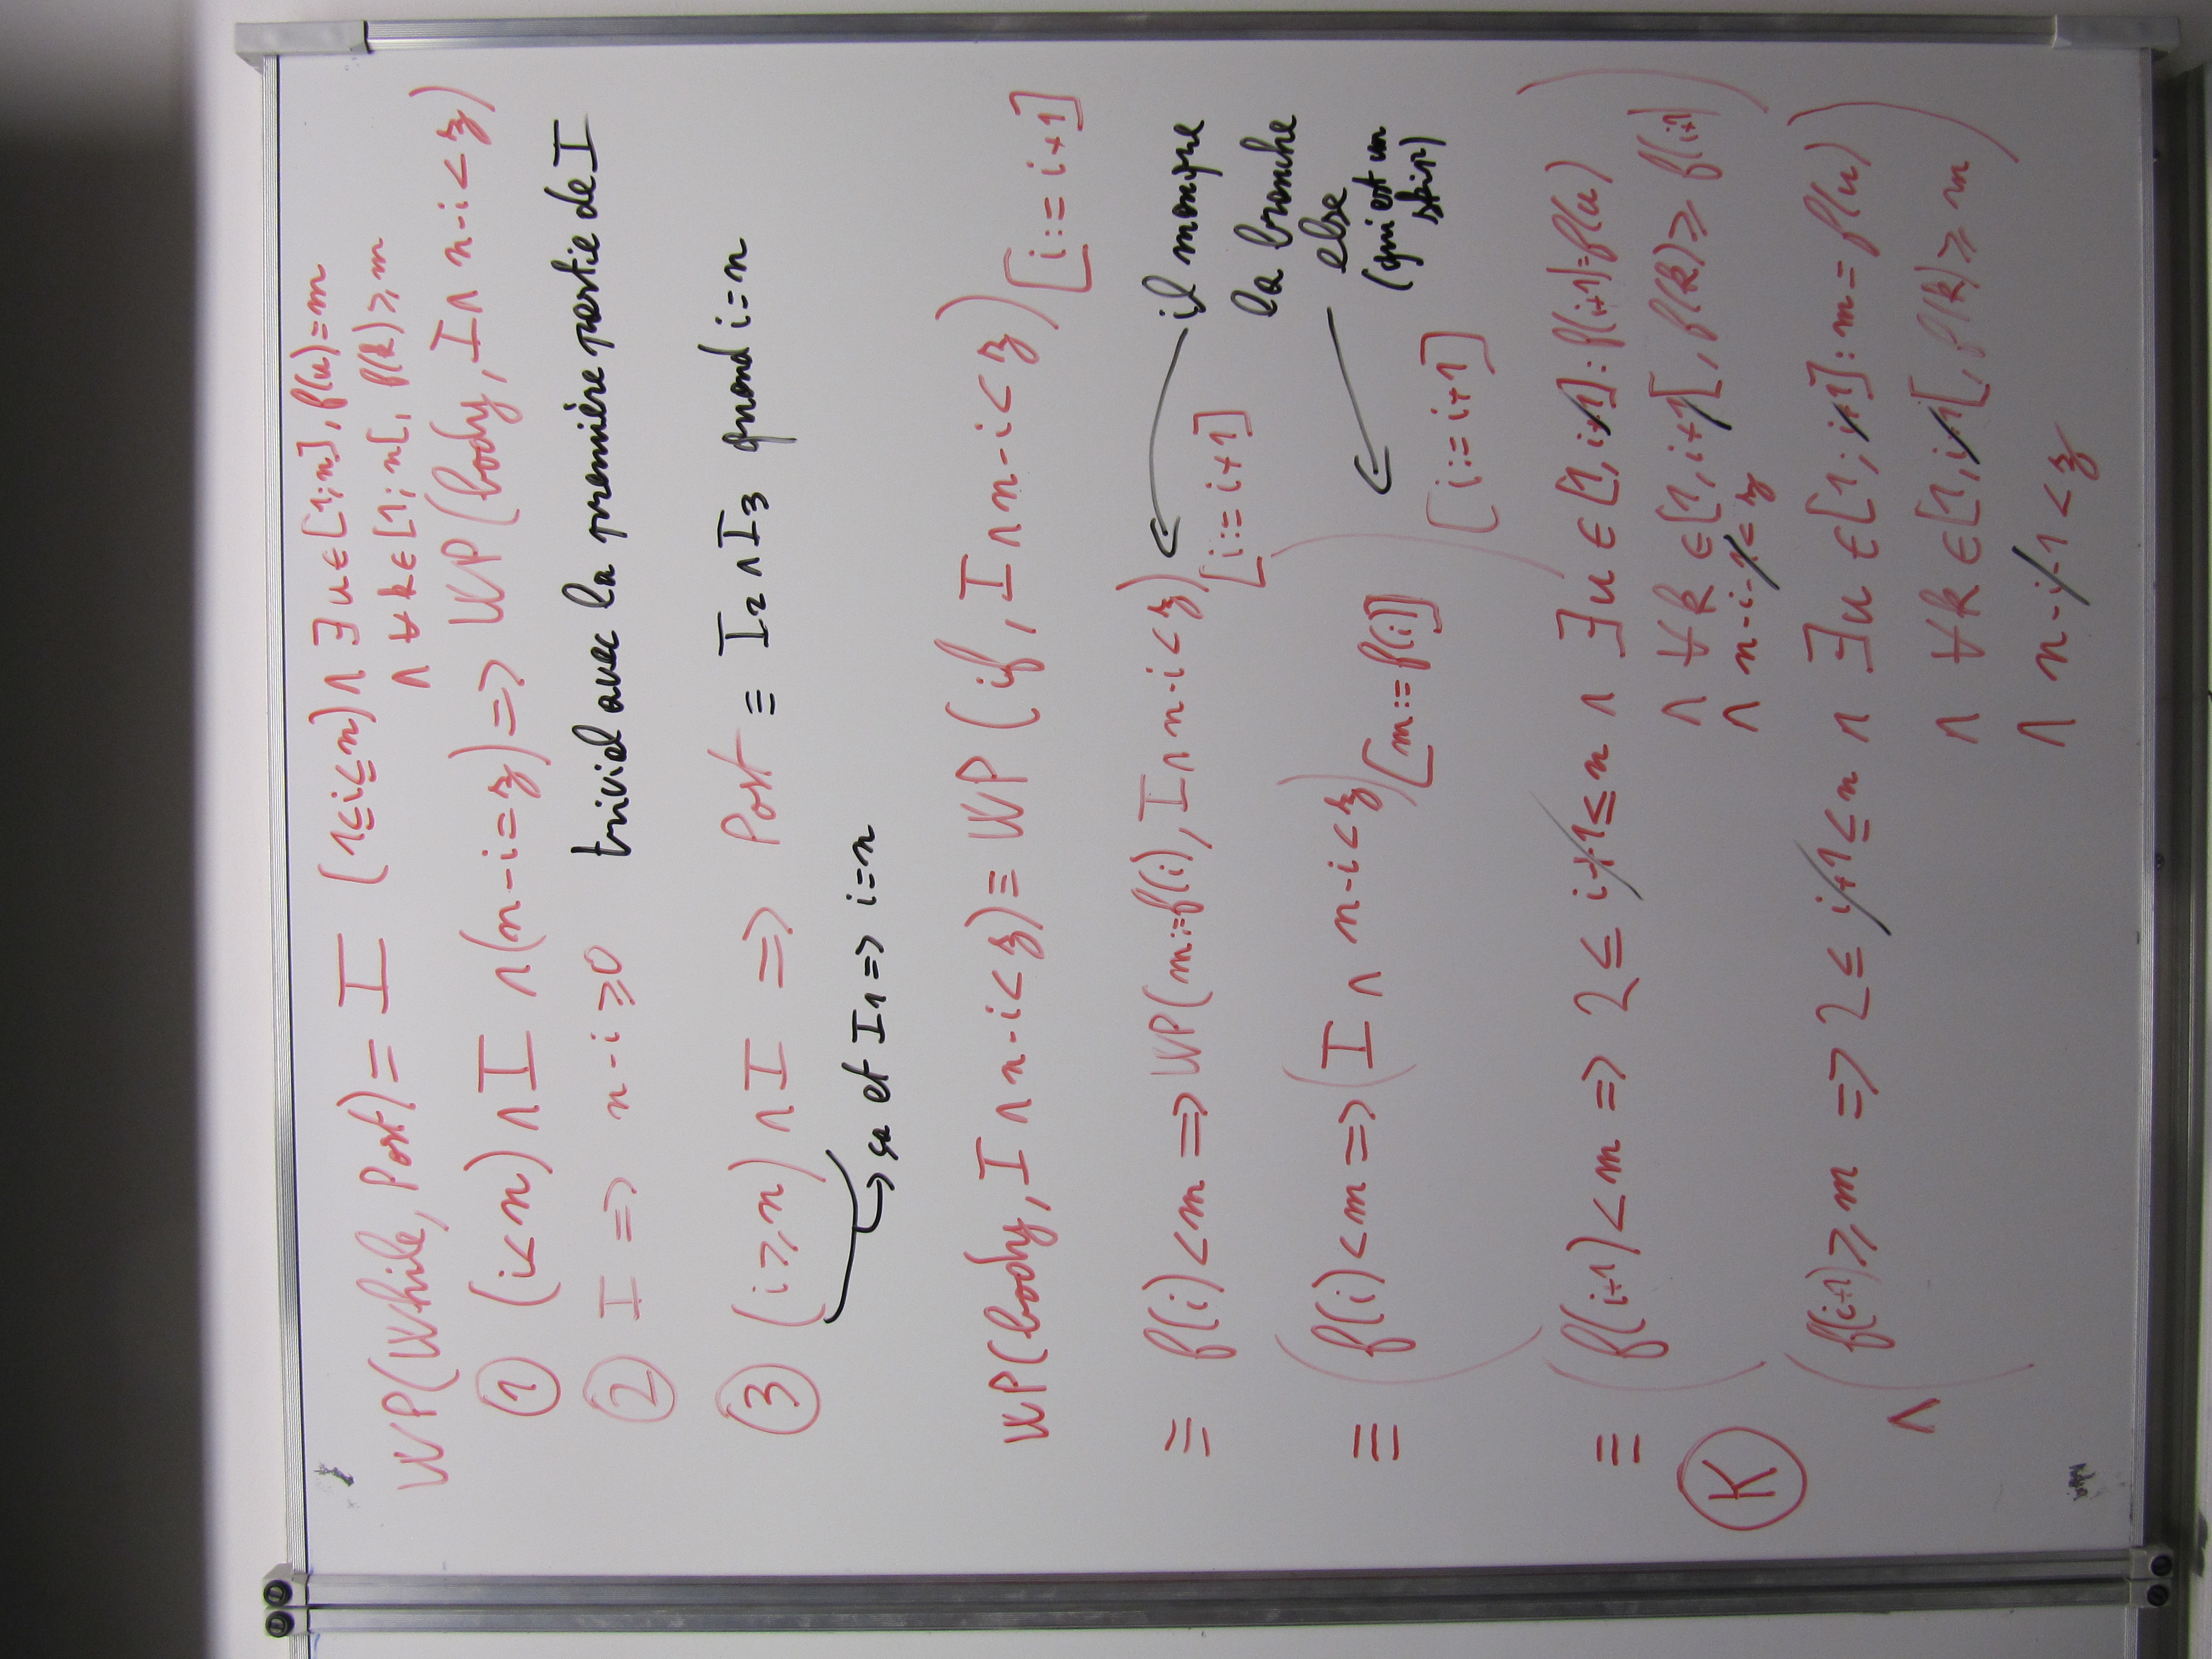 WP(While, Post) = I (1≤i≤n) ∧ ∃u∈[1;n], f(u)=m
∧ ∀k∈[1;n[, f(k)≥m
① (i<n) ∧ I ∧ (n-i=z) => WP(body, I ∧ n-i<z)
② I => n-i≥0 trivial avec la première partie de I
③ (i≥n) ∧ I => Post ≡ I₂ ∧ I₃ quand i=n
↳ ça et I₁ => i=n
WP(body, I ∧ n-i<z) ≡ WP(if, I ∧ n-i<z)[i:=i+1]
≡ f(i)<m => WP(m:=f(i), I ∧ n-i<z)[i:=i+1] ← il manque
la branche
else
(qui est un
skip)
≡ (f(i)<m => (I ∧ n-i<z)[m:=f(i)]) [i:=i+1]
≡ (f(i+1)<m => 2 ≤ i+1 ≤ n ∧ ∃u∈[1,i+1]: f(i+1)=f(u)
∧ ∀k∈[1,i+1[, f(k)≥f(i+1)
∧ n-i-1<z)
K
∧ (f(i+1)≥m => 2 ≤ i+1 ≤ n ∧ ∃u∈[1;i+1]: m=f(u)
∧ ∀k∈[1,i+1[, f(k)≥m)
∧ n-i-1<z